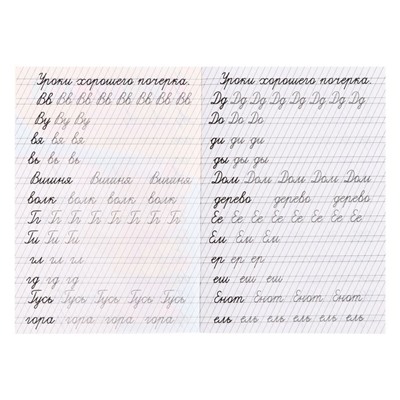 Уроки хорошего почерка.
Вв Вв Вв Вв Вв Вв Вв Вв
Ву Ву Ву
вя вя вя
вь вь вь
Вишня Вишня Вишня
волк волк волк волк
Гг Гг Гг Гг Гг Гг Гг Гг
Ги Ги Ги
гл гл гл
гд гд гд
Гусь Гусь Гусь Гусь
гора гора гора гора
Уроки хорошего почерка.
Дд Дд Дд Дд Дд Дд Дд
До До До
ди ди ди
ды ды ды
Дом Дом Дом Дом Дом
дерево дерево дерево
Ее Ее Ее Ее Ее Ее Ее
Ем Ем Ем
ер ер ер
еш еш еш
Енот Енот Енот Енот
ель ель ель ель ель